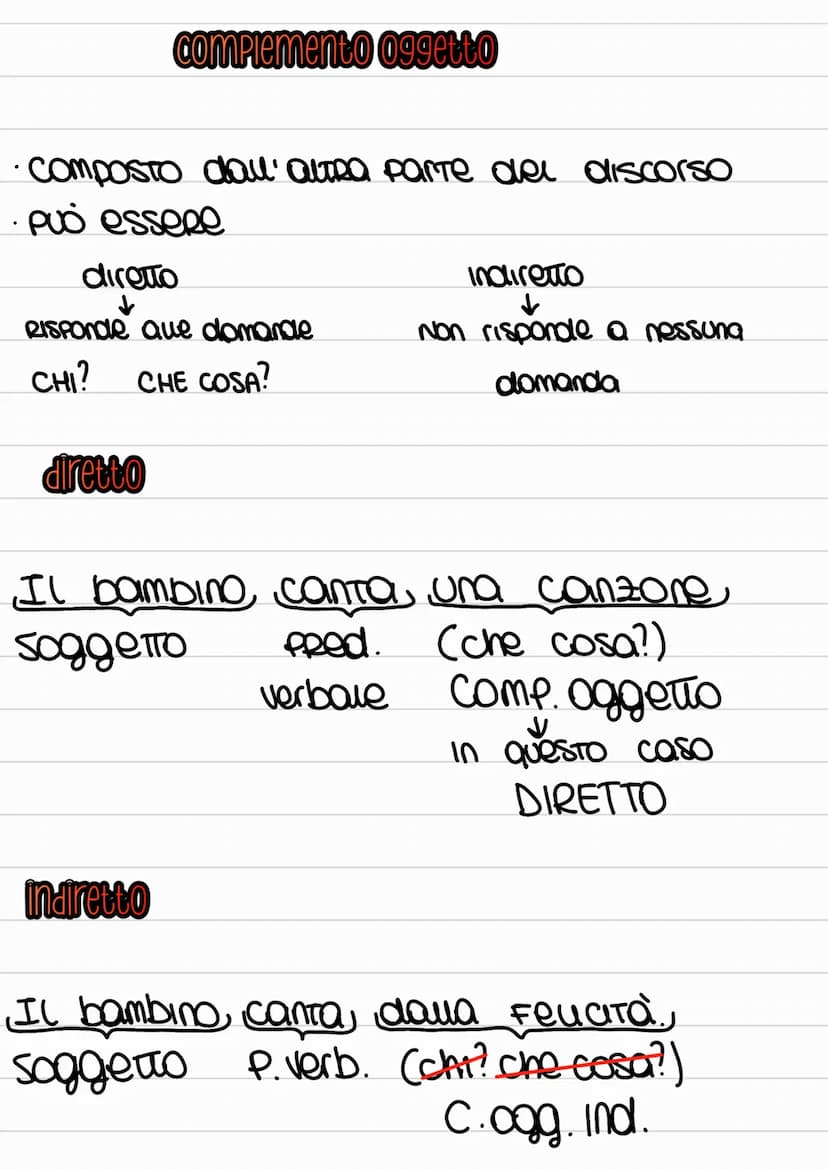 complemento oggetto
· COMPOSTO dall' altra parte del discorso
· PUÒ essere
diretto indiretto
↓ ↓
RISPONDE alle domande Non risponde a nessuna
CHI? CHE COSA? domanda
diretto
Il bambino canta una canzone
Soggetto Pred. (che cosa?)
verbale Comp. Oggetto
↓
in questo caso
DIRETTO
indiretto
Il bambino canta dalla Felicità.
Soggetto P. verb. (chi? che cosa?)
C. ogg. ind.